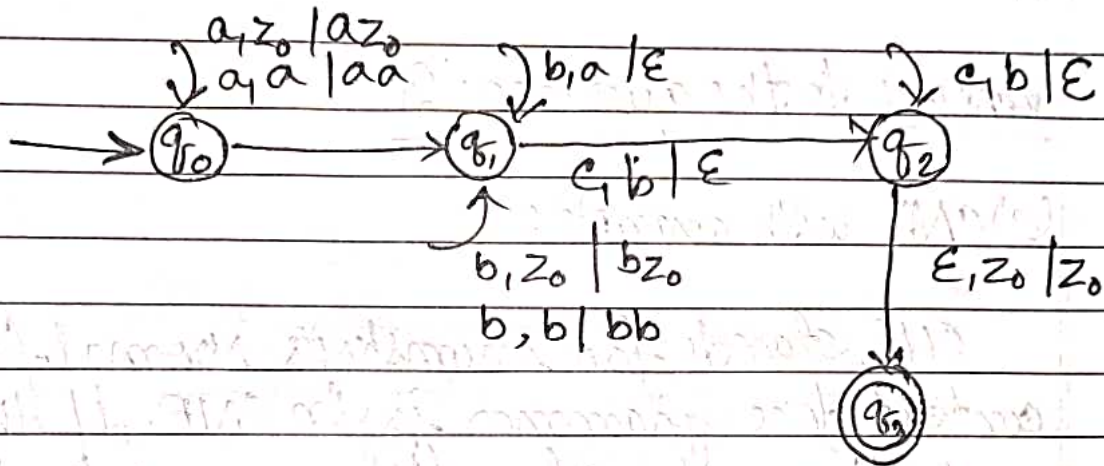 a, z₀ | az₀
a, a | aa
b, a | ε
c, b | ε
q₀
q₁
q₂
c, b | ε
b, z₀ | bz₀
b, b | bb
ε, z₀ | z₀